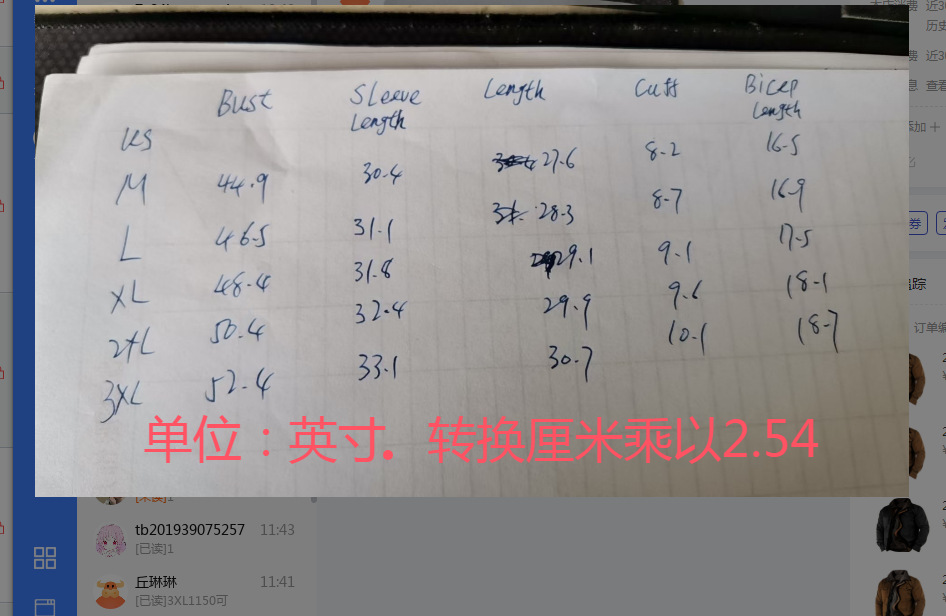 Bust Sleeve Length Length Cuff Bicep Length
US
M 44.9 30.4 27.6 8.2 16.5
L 46.5 31.1 28.3 8.7 16.9
XL 48.4 31.8 29.1 9.1 17.5
2XL 50.4 32.4 29.9 9.6 18.1
3XL 52.4 33.1 30.7 10.1 18.7
单位：英寸. 转换厘米乘以2.54
[未读]1
tb201939075257 11:43
[已读]1
丘琳琳 11:41
[已读]3XL1150可
近3
历史
息 查看
添加 +
券
追踪
订单编